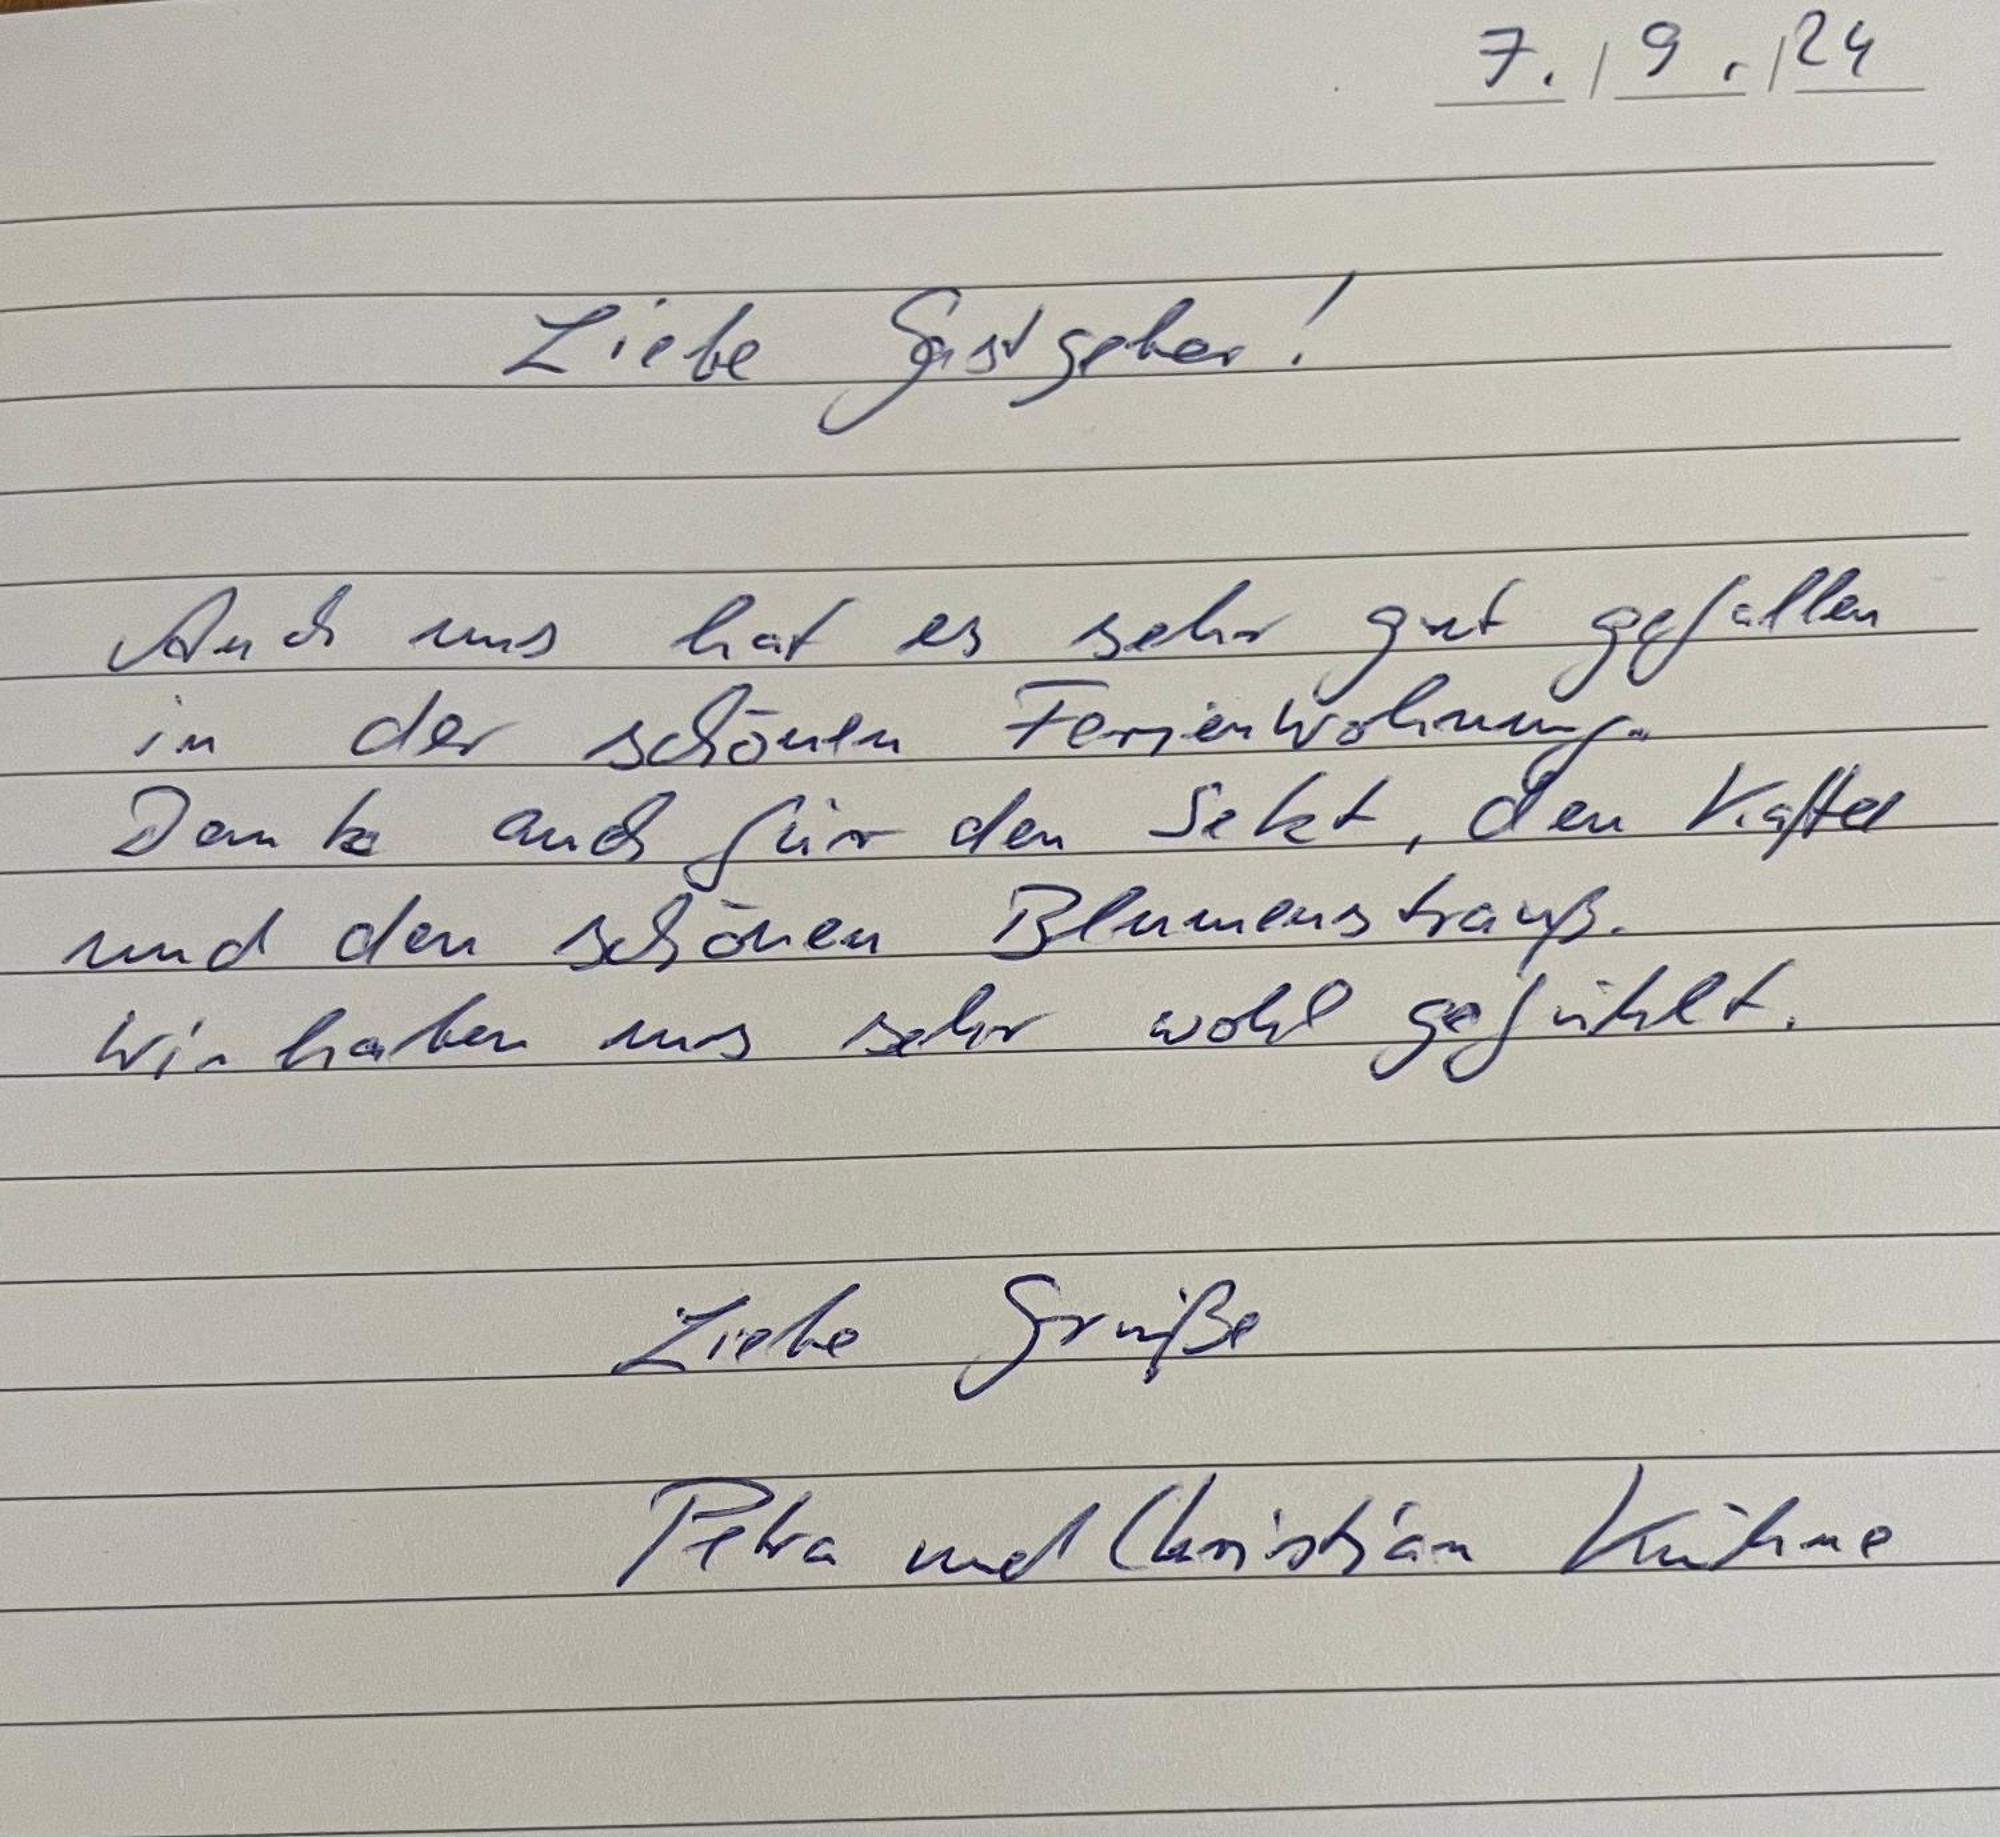 7. / 9. / 24
Liebe Gastgeber!
Auch uns hat es sehr gut gefallen
in der schönen Ferienwohnung.
Danke auch für den Sekt, den Kaffee
und den schönen Blumenstrauß.
Wir haben uns sehr wohl gefühlt.
Liebe Grüße
Petra und Christian Kühne